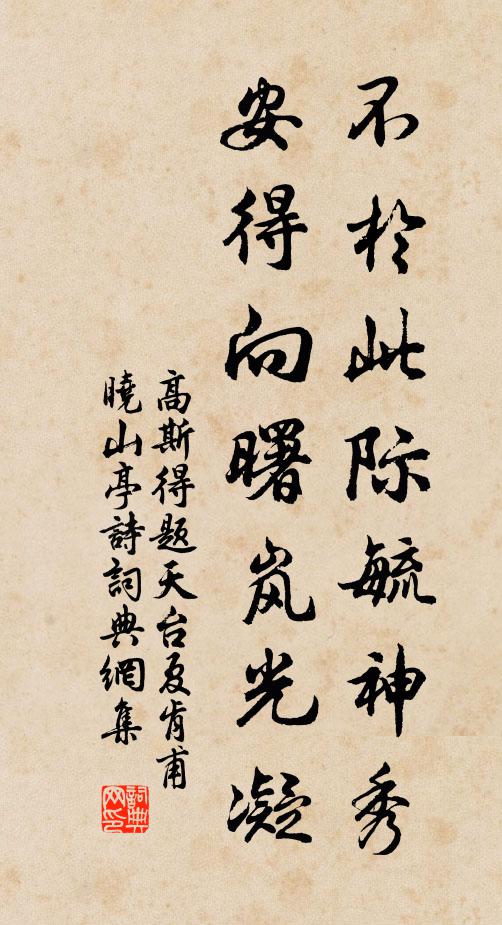 不於此际毓神秀
安得向曙岚光凝
高斯得题天台夏肯甫
曉山亭詩詞典網集
詞典网印